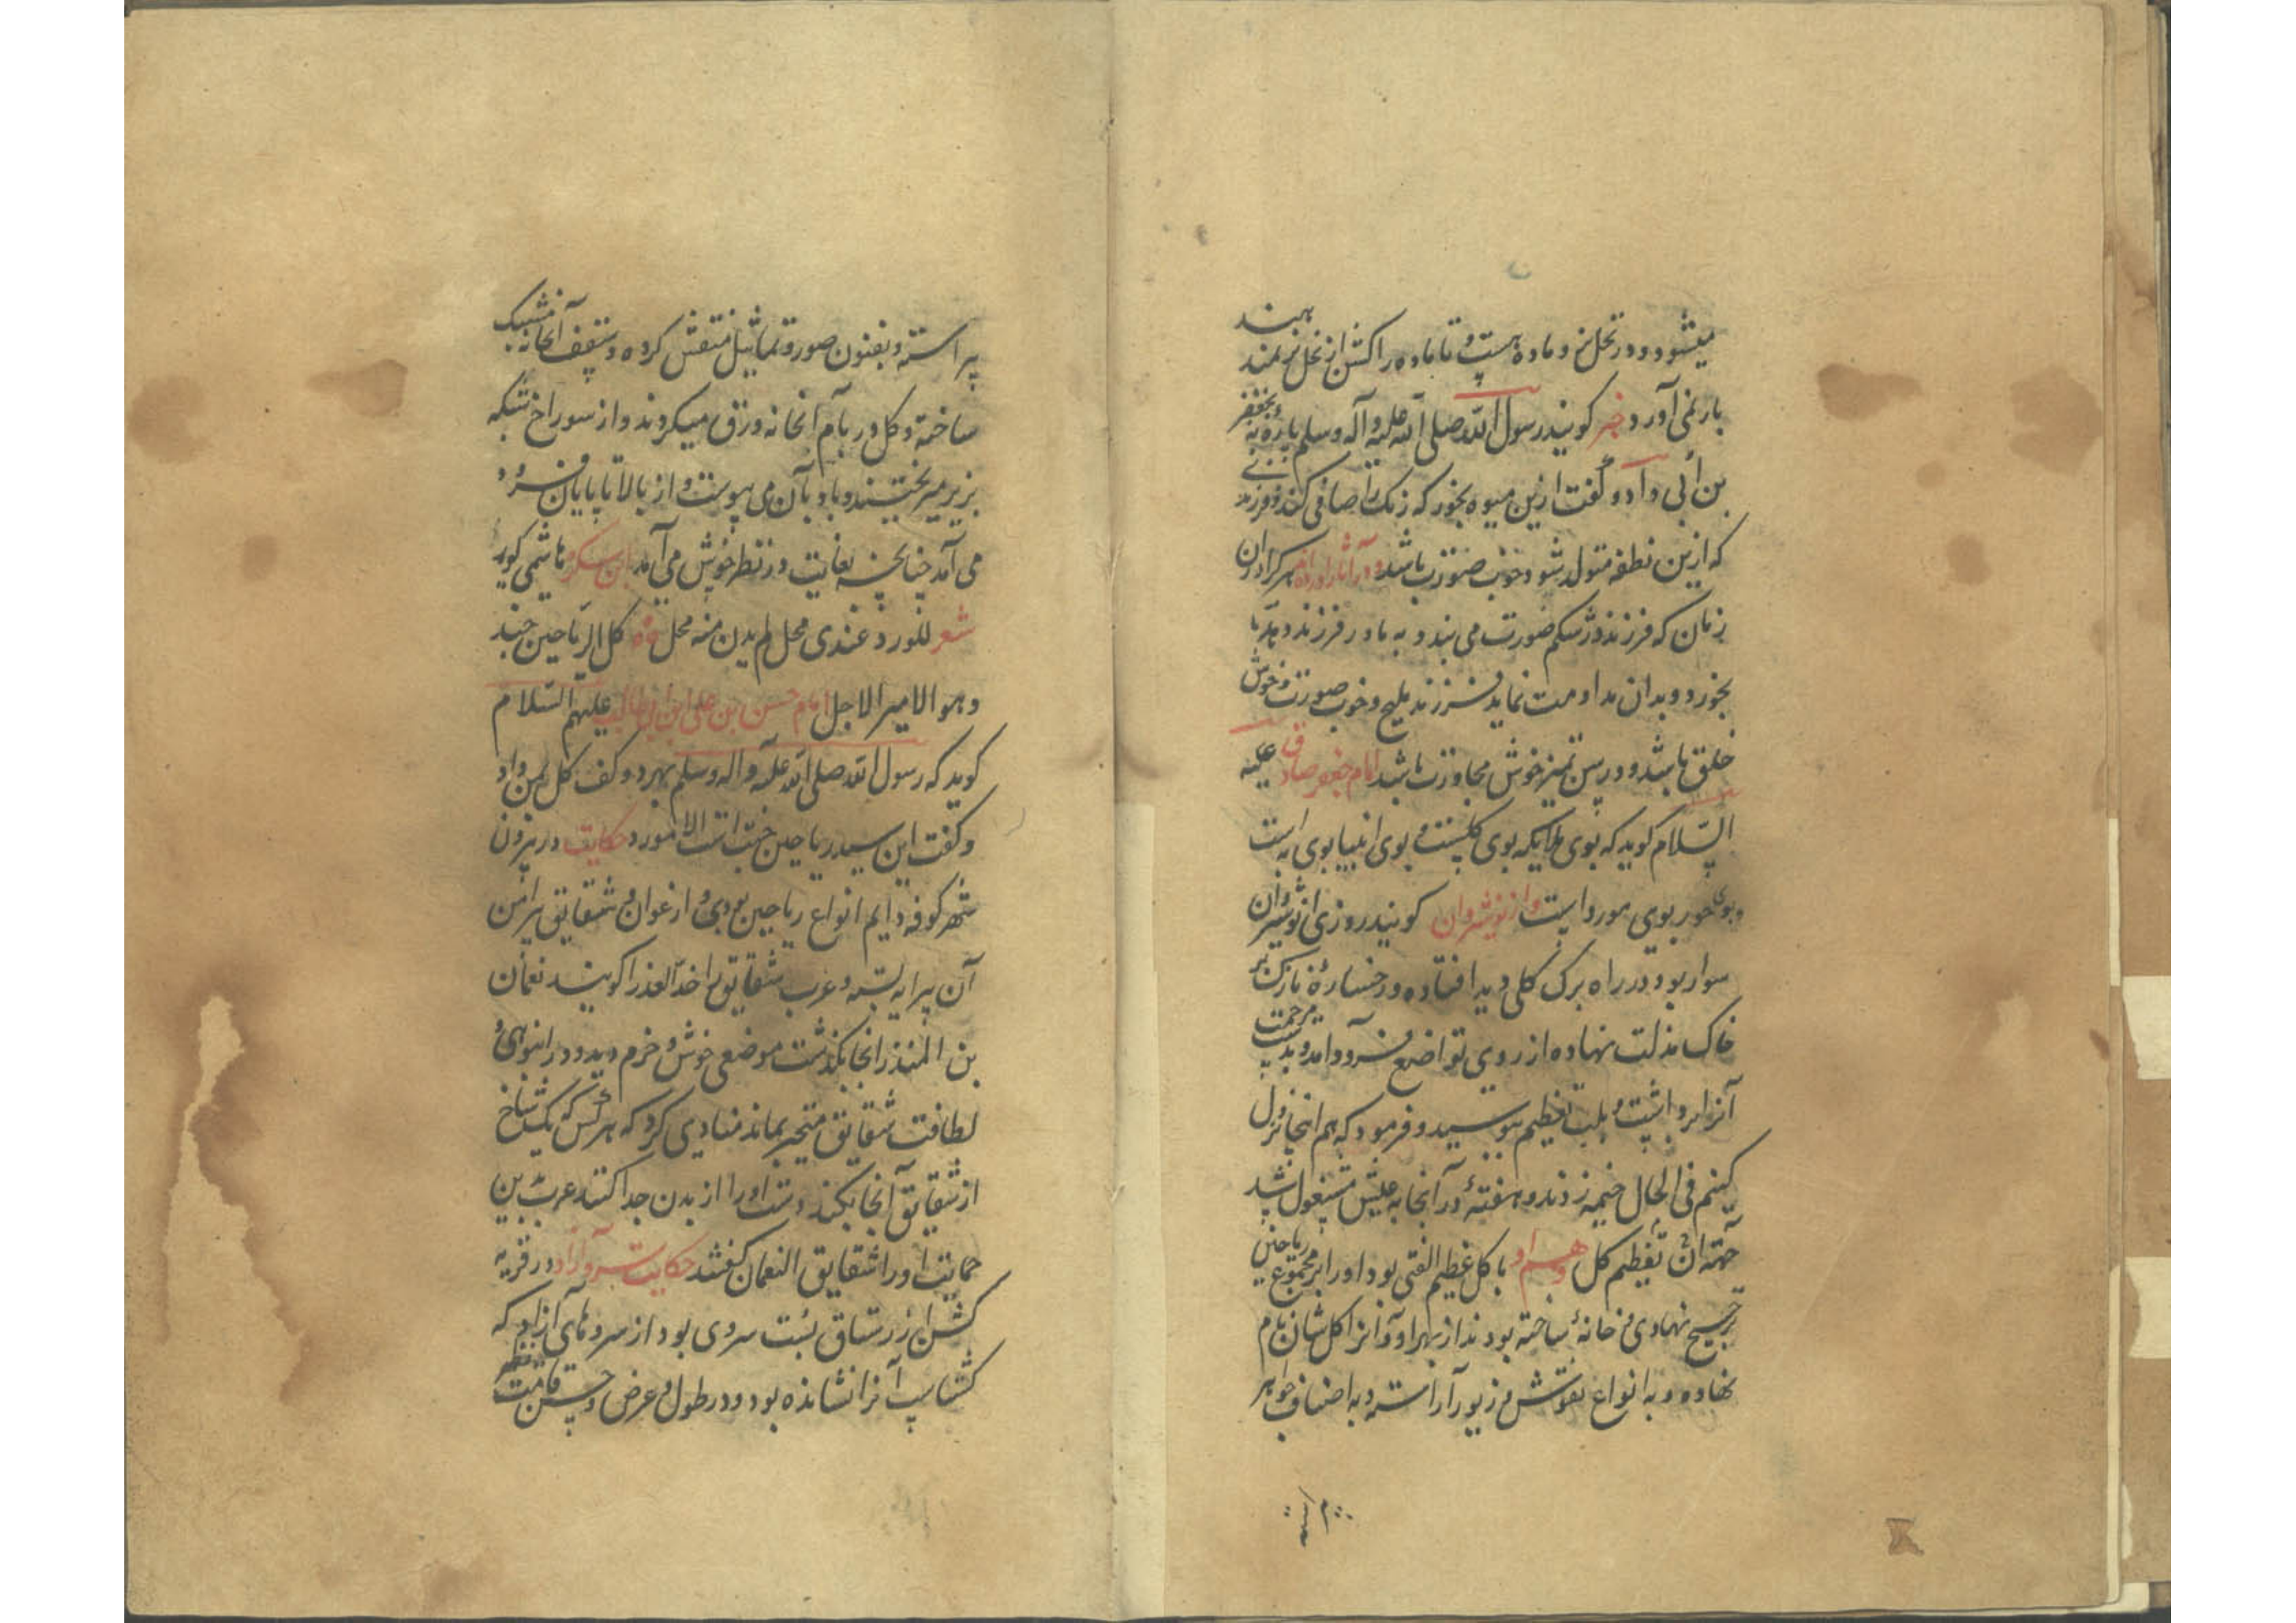 میشود و در نخل نر و ماده هست و تا ماده را کشن از نخل نر ندهند
بار نمی آورد خبر کویند رسول الله صلی الله علیه وآله وسلم پارهٔ به بجعفر
بن ابی داد و گفت ازین میوه بخور که رنک را صافی کند و فرزندی
که ازین نطفه متولد شود خوب صورت باشد و در آثار هر که در آن
زمان که فرزند در شکم صورت می بندد به مادر فرزند دهد تا
بخورد و بدان مداومت نماید فرزند ملیح و خوب صورت و خوش
خلق باشد و در سن تمیز خوش مجاورت باشد امام جعفر صادق علیه
السلام کوید که بوی ملایکه بوی کلست و بوی انبیا بوی به است
و بوی حور بوی مورد است و از نوشروان کویند روزی انوشیروان
سوار بود در راه برک کلی دید افتاده و رخسارهٔ نازک بر
خاک مذلت نهاده از روی تواضع فرود آمد و بدست مرحمت
آنرا برداشت و بلب تعظیم ببوسید و فرمود که هم اینجا نزول
کنیم فی الحال خیمه زدند و هفتهٔ در آنجا به عیش مشغول شد
جهة آن تعظیم کل و هم او با کل عظیم الفتی بود او را بر مجموع ریاحین
ترجیح نهادی و خانهٔ ساخته بودند از بهر او و آنرا کلشان نام
نهاده و به انواع نقوش و زیور آراسته و به اصناف جواهر
پیراسته و بفنون صور و تماثیل منقش کرده و سقف آنخانه مشبک
ساخته و کل در بام آنخانه ورق میکردند و از سوراخ شبکه
بزیر میریختند و باد بآن می پیوست و از بالا تا پایان فرود
می آمد چنانچه بغایت در نظر خوش می آمد ابن سکره هاشمی کوید
شعر للورد عندی محل لم یدن منه محل کل الریاحین جند
و هو الامیر الاجل امام حسن بن علی ابن ابی طالب علیهم السلام
کوید که رسول الله صلی الله علیه وآله وسلم بهر دو کف کل بمن داد
و کفت این سید ریاحین جنت است الا مورد حکایت در بیرون
شهر کوفه دایم انواع ریاحین بودی و ارغوان و شقایق پیرامن
آن پیرایه بسته و عرب شقایق را خد العذرا کویند نعمان
بن المنذر آنجا بکذشت موضعی خوش و خرم دید و در انبوهی و
لطافت شقایق متحیر بماند منادی کرد که هر کس که یک شاخ
از شقایق آنجا بکند دست او را از بدن جدا کنند عرب بدین
حمایت او را شقایق النعمان کفتند حکایت سرو آزاد در قریه
کشن از رستاق بست سروی بود از سروهای آزاد که
کشتاسب آنرا نشانده بود و در طول و عرض و حسن قامت